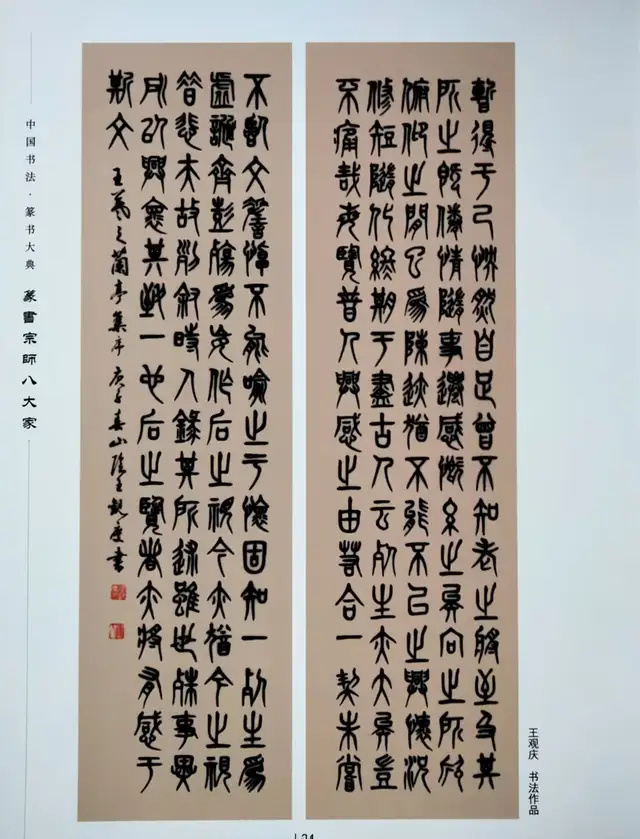 暫得于己怏然自足曾不知老之將至及其
所之既倦情隨事遷感慨系之矣向之所欣
俯仰之間已爲陳迹猶不能不以之興懷況
修短隨化終期于盡古人云死生亦大矣豈
不痛哉每覽昔人興感之由若合一契未嘗
不臨文嗟悼不能喻之于懷固知一死生爲
虛誕齊彭殤爲妄作后之視今亦猶今之視
昔悲夫故列敘時人錄其所述雖世殊事異
所以興懷其致一也后之覽者亦將有感于
斯文 王羲之蘭亭集序 庚子春山陰王觀慶書
中国书法·篆书大典 篆書宗師八大家
王观庆 书法作品